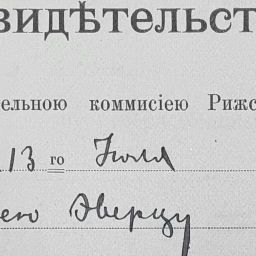 видѣтельст
ельною коммисіею Рижс
13 го Іюля
ею Эверцу